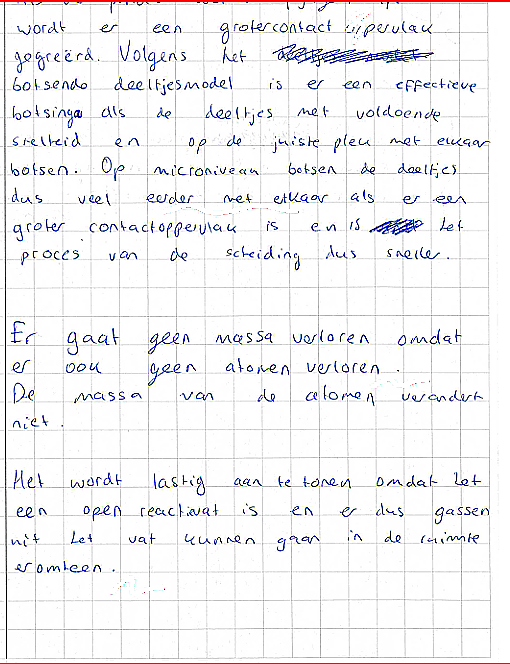 wordt er een groter contact oppervlak
gegreërd. Volgens het
botsende deeltjesmodel is er een effectieve
botsing als de deeltjes met voldoende
snelheid en op de juiste plek met elkaar
botsen. Op microniveau botsen de deeltjes
dus veel eerder met elkaar als er een
groter contactoppervlak is en is het
proces van de scheiding dus sneller.
Er gaat geen massa verloren omdat
er ook geen atomen verloren.
De massa van de atomen verandert
niet.
Het wordt lastig aan te tonen omdat het
een open reactievat is en er dus gassen
uit het vat kunnen gaan in de ruimte
eromheen.